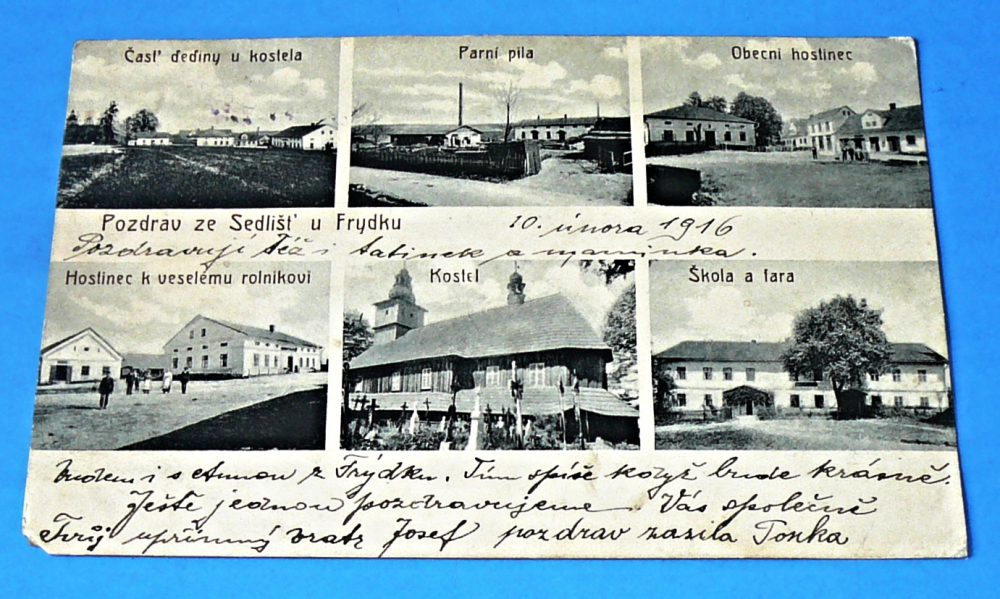 Časť dědiny u kostela
Parní pila
Obecni hostinec
Pozdrav ze Sedlišť u Frydku
10. února 1916
Pozdravují Též i tatinek a maminka.
Hostinec k veselému rolnikovi
Kostel
Škola a fara
budem i s Annou z Frýdku. Tím spíše když bude krásně.
Ještě jednou pozdravujeme Vás společně
Tvůj upřímný bratr Josef pozdrav zasila Tonka